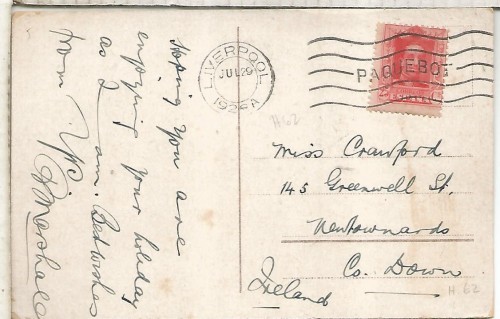 Hoping you are
enjoying your holiday
as I am. Best wishes
from Yrs
Marshall
LIVERPOOL
JUL 29
192 A
PAQUEBOT
H.62
Miss Crawford
145 Greenwell St.
Newtownards
Co. Down
Ireland
H.62